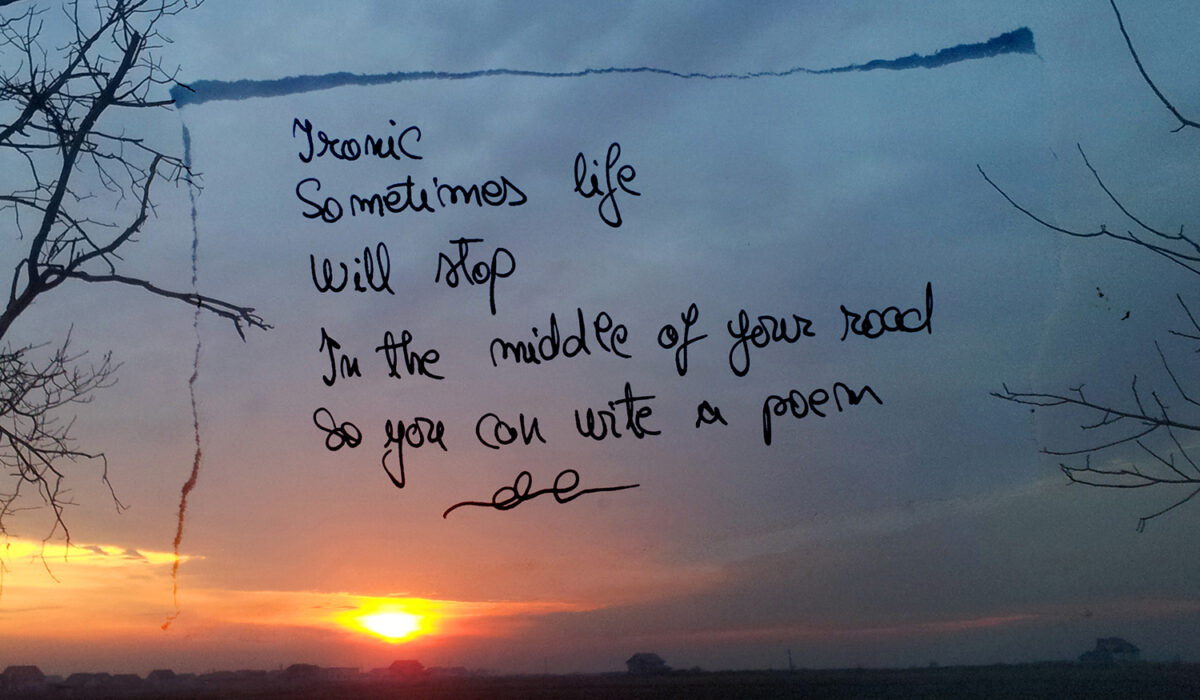 Ironic
Sometimes life
Will stop
In the middle of your road
So you can write a poem